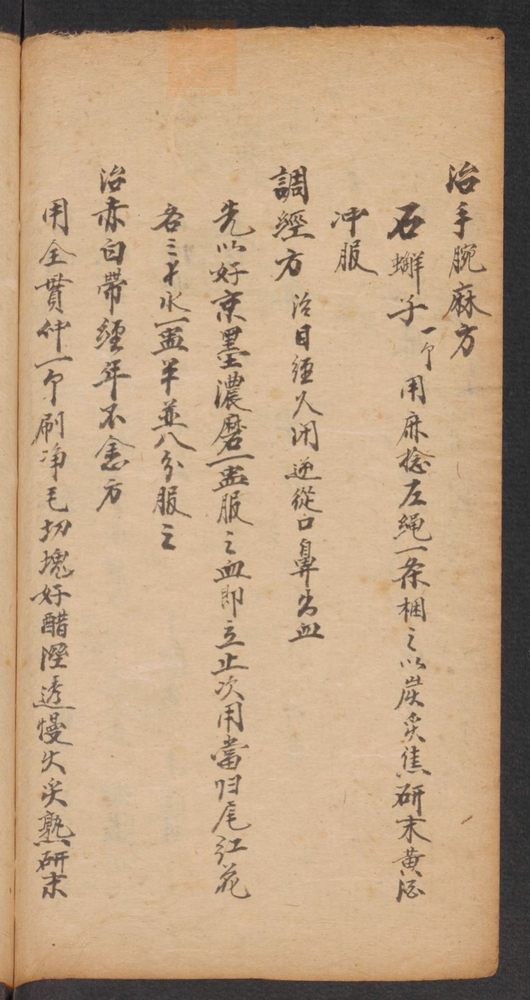 治手腕麻方
石蠏子一个用麻捻左繩一条梱之以炭炙焦研末黄酒
冲服
調經方 治月經久闭逆從口鼻出血
先以好京墨濃磨一盅服之血即立止次用當归尾红花
各三才水一盅半並八分服之
治赤白帶經年不愈方
用全貫仲一个刷净毛切塊好醋隉透慢火炙熟研末